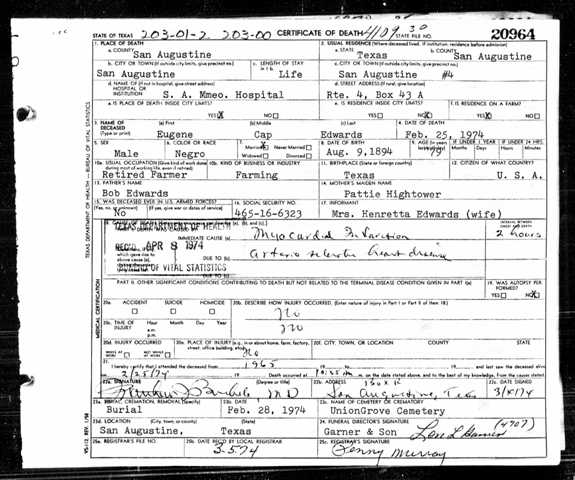 STATE OF TEXAS 203-01-2 203-00 CERTIFICATE OF DEATH 4109 30 STATE FILE NO. 20964
1. PLACE OF DEATH
a. COUNTY San Augustine
2. USUAL RESIDENCE (Where deceased lived. If institution: residence before admission)
a. STATE Texas b. COUNTY San Augustine
b. CITY OR TOWN (If outside city limits, give precinct no.) San Augustine
c. LENGTH OF STAY in 1 b. Life
c. CITY OR TOWN (If outside city limits, give precinct no.) San Augustine #4
d. NAME OF (If not in hospital, give street address) HOSPITAL OR INSTITUTION S. A. Mmeo. Hospital
d. STREET ADDRESS (If rural, give location) Rte. 4, Box 43 A
e. IS PLACE OF DEATH INSIDE CITY LIMITS? YES X NO
e. IS RESIDENCE INSIDE CITY LIMITS? YES NO X
f. IS RESIDENCE ON A FARM? YES NO X
3. NAME OF DECEASED (Type or print) (a) First Eugene (b) Middle Cap (c) Last Edwards
4. DATE OF DEATH Feb. 25, 1974
5. SEX Male
6. COLOR OR RACE Negro
7. Married X Never Married Widowed Divorced
8. DATE OF BIRTH Aug. 9, 1894
9. AGE (In years last birthday) 79
IF UNDER 1 YEAR Months Days
IF UNDER 24 HRS. Hours Min.
10a. USUAL OCCUPATION (Give kind of work done during most of working life, even if retired) Retired Farmer
10b. KIND OF BUSINESS OR INDUSTRY Farming
11. BIRTHPLACE (State or foreign country) Texas
12. CITIZEN OF WHAT COUNTRY? U. S. A.
13. FATHER'S NAME Bob Edwards
14. MOTHER'S MAIDEN NAME Pattie Hightower
15. WAS DECEASED EVER IN U.S. ARMED FORCES? (Yes, no, or unknown) (If yes, give war or dates of service) No
16. SOCIAL SECURITY NO. 465-16-6323
17. INFORMANT Mrs. Henretta Edwards (wife)
TEXAS DEPARTMENT OF HEALTH
REC'D APR 8 1974
BUREAU OF VITAL STATISTICS
IMMEDIATE CAUSE (a) Myocardial Infarction
INTERVAL BETWEEN ONSET AND DEATH 2 hours
arterio sclerotic heart disease
PART II. OTHER SIGNIFICANT CONDITIONS CONTRIBUTING TO DEATH BUT NOT RELATED TO THE TERMINAL DISEASE CONDITION GIVEN IN PART I(a)
19. WAS AUTOPSY PERFORMED? YES NO X
20a. ACCIDENT SUICIDE HOMICIDE
20b. DESCRIBE HOW INJURY OCCURRED. (Enter nature of injury in Part I or Part II of item 18)
No
20c. TIME OF INJURY Hour Month Day Year
no
20d. INJURY OCCURRED WHILE AT WORK NOT WHILE AT WORK
20e. PLACE OF INJURY (e.g., in or about home, farm, factory, street, office building, etc.) No
20f. CITY, TOWN, OR LOCATION COUNTY STATE
21. I hereby certify that I attended the deceased from 1965
2/25/74 Death occurred at m. on the date stated above, and to the best of my knowledge, from the causes stated
22a. SIGNATURE (Degree or title) MD
22b. ADDRESS San Augustine, Tex
22c. DATE SIGNED 3/4/74
23a. BURIAL, CREMATION, REMOVAL (Specify) Burial
23b. DATE Feb. 28, 1974
23c. NAME OF CEMETERY OR CREMATORY UnionGrove Cemetery
23d. LOCATION (City, town, or county) (State) San Augustine, Texas
24. FUNERAL DIRECTOR'S SIGNATURE Garner & Son (4707)
25a. REGISTRAR'S FILE NO.
25b. DATE REC'D BY LOCAL REGISTRAR 3-5-74
25c. REGISTRAR'S SIGNATURE Penny Murray
TEXAS DEPARTMENT OF HEALTH — BUREAU OF VITAL STATISTICS
MEDICAL CERTIFICATION